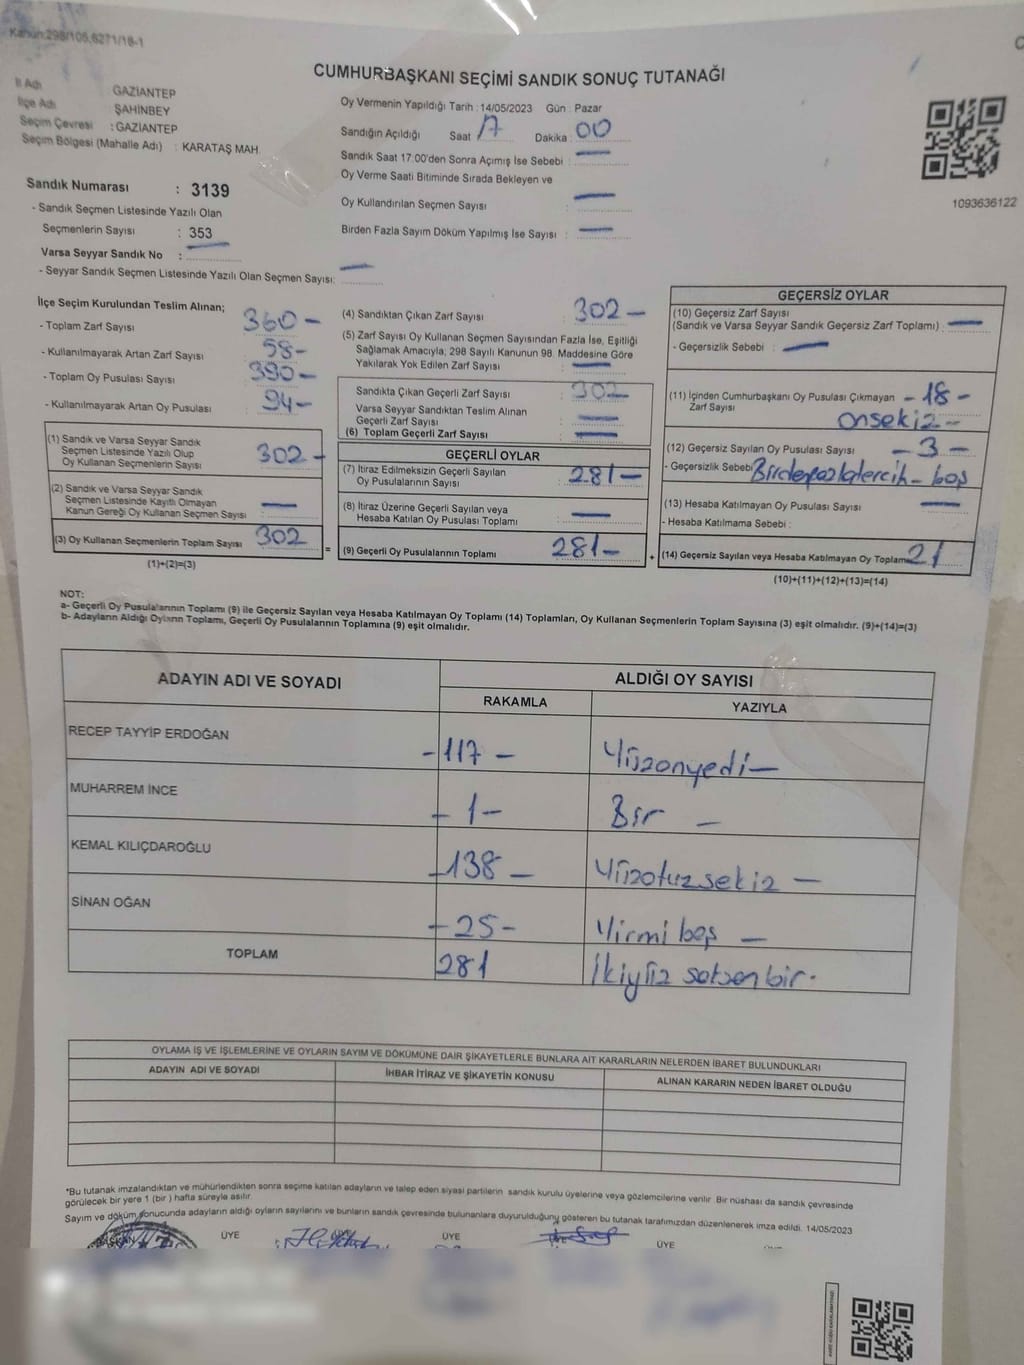 Kanun:298/105,6271/18-1
CUMHURBAŞKANI SEÇİMİ SANDIK SONUÇ TUTANAĞI
İl Adı GAZİANTEP
İlçe Adı ŞAHİNBEY
Seçim Çevresi : GAZİANTEP
Seçim Bölgesi (Mahalle Adı) : KARATAŞ MAH.
Sandık Numarası : 3139
- Sandık Seçmen Listesinde Yazılı Olan
Seçmenlerin Sayısı : 353
Varsa Seyyar Sandık No :
- Seyyar Sandık Seçmen Listesinde Yazılı Olan Seçmen Sayısı:
Oy Vermenin Yapıldığı Tarih : 14/05/2023 Gün : Pazar
Sandığın Açıldığı Saat 17 Dakika : 00
Sandık Saat 17:00'den Sonra Açımış İse Sebebi :
Oy Verme Saati Bitiminde Sırada Bekleyen ve
Oy Kullandırılan Seçmen Sayısı :
Birden Fazla Sayım Döküm Yapılmış İse Sayısı :
1093636122
İlçe Seçim Kurulundan Teslim Alınan;
- Toplam Zarf Sayısı 360 -
- Kullanılmayarak Artan Zarf Sayısı : 58-
- Toplam Oy Pusulası Sayısı : 390 -
- Kullanılmayarak Artan Oy Pusulası : 94-
(1) Sandık ve Varsa Seyyar Sandık
Seçmen Listesinde Yazılı Olup
Oy Kullanan Seçmenlerin Sayısı : 302 -
(2) Sandık ve Varsa Seyyar Sandık
Seçmen Listesinde Kayıtlı Olmayan
Kanun Gereği Oy Kullanan Seçmen Sayısı :
(3) Oy Kullanan Seçmenlerin Toplam Sayısı 302
(1)+(2)=(3)
(4) Sandıktan Çıkan Zarf Sayısı : 302 -
(5) Zarf Sayısı Oy Kullanan Seçmen Sayısından Fazla İse, Eşitliği
Sağlamak Amacıyla; 298 Sayılı Kanunun 98. Maddesine Göre
Yakılarak Yok Edilen Zarf Sayısı :
Sandıkta Çıkan Geçerli Zarf Sayısı : 302
Varsa Seyyar Sandıktan Teslim Alınan
Geçerli Zarf Sayısı :
(6) Toplam Geçerli Zarf Sayısı :
GEÇERLİ OYLAR
(7) İtiraz Edilmeksizin Geçerli Sayılan
Oy Pusulalarının Sayısı : 281 -
(8) İtiraz Üzerine Geçerli Sayılan veya
Hesaba Katılan Oy Pusulası Toplamı :
= (9) Geçerli Oy Pusulalarının Toplamı 281 -
GEÇERSİZ OYLAR
(10) Geçersiz Zarf Sayısı
(Sandık ve Varsa Seyyar Sandık Geçersiz Zarf Toplamı) :
- Geçersizlik Sebebi :
(11) İçinden Cumhurbaşkanı Oy Pusulası Çıkmayan - 18 -
Zarf Sayısı onsekiz -
(12) Geçersiz Sayılan Oy Pusulası Sayısı - 3 -
- Geçersizlik Sebebi - boş
(13) Hesaba Katılmayan Oy Pusulası Sayısı :
- Hesaba Katılmama Sebebi :
+ (14) Geçersiz Sayılan veya Hesaba Katılmayan Oy Toplamı 21
(10)+(11)+(12)+(13)=(14)
NOT:
a- Geçerli Oy Pusulalarının Toplamı (9) ile Geçersiz Sayılan veya Hesaba Katılmayan Oy Toplamı (14) Toplamları, Oy Kullanan Seçmenlerin Toplam Sayısına (3) eşit olmalıdır. (9)+(14)=(3)
b- Adayların Aldığı Oyların Toplamı, Geçerli Oy Pusulalarının Toplamına (9) eşit olmalıdır.
ADAYIN ADI VE SOYADI ALDIĞI OY SAYISI
RAKAMLA YAZIYLA
RECEP TAYYİP ERDOĞAN - 117 - Yüzonyedi -
MUHARREM İNCE - 1 - Bir -
KEMAL KILIÇDAROĞLU - 138 - Yüzotuzsekiz -
SİNAN OĞAN - 25 - Yirmi beş -
TOPLAM 281 İkiyüz seksen bir.
OYLAMA İŞ VE İŞLEMLERİNE VE OYLARIN SAYIM VE DÖKÜMÜNE DAİR ŞİKAYETLERLE BUNLARA AİT KARARLARIN NELERDEN İBARET BULUNDUKLARI
ADAYIN ADI VE SOYADI İHBAR İTİRAZ VE ŞİKAYETİN KONUSU ALINAN KARARIN NEDEN İBARET OLDUĞU
*Bu tutanak imzalandıktan ve mühürlendikten sonra seçime katılan adayların ve talep eden siyasi partilerin sandık kurulu üyelerine veya gözlemcilerine verilir. Bir nüshası da sandık çevresinde
görülecek bir yere 1 (bir ) hafta süreyle asılır.
Sayım ve döküm sonucunda adayların aldığı oyların sayılarını ve bunların sandık çevresinde bulunanlara duyurulduğunu gösteren bu tutanak tarafımızdan düzenlenerek imza edildi. 14/05/2023
BAŞKAN ÜYE ÜYE ÜYE ÜYE